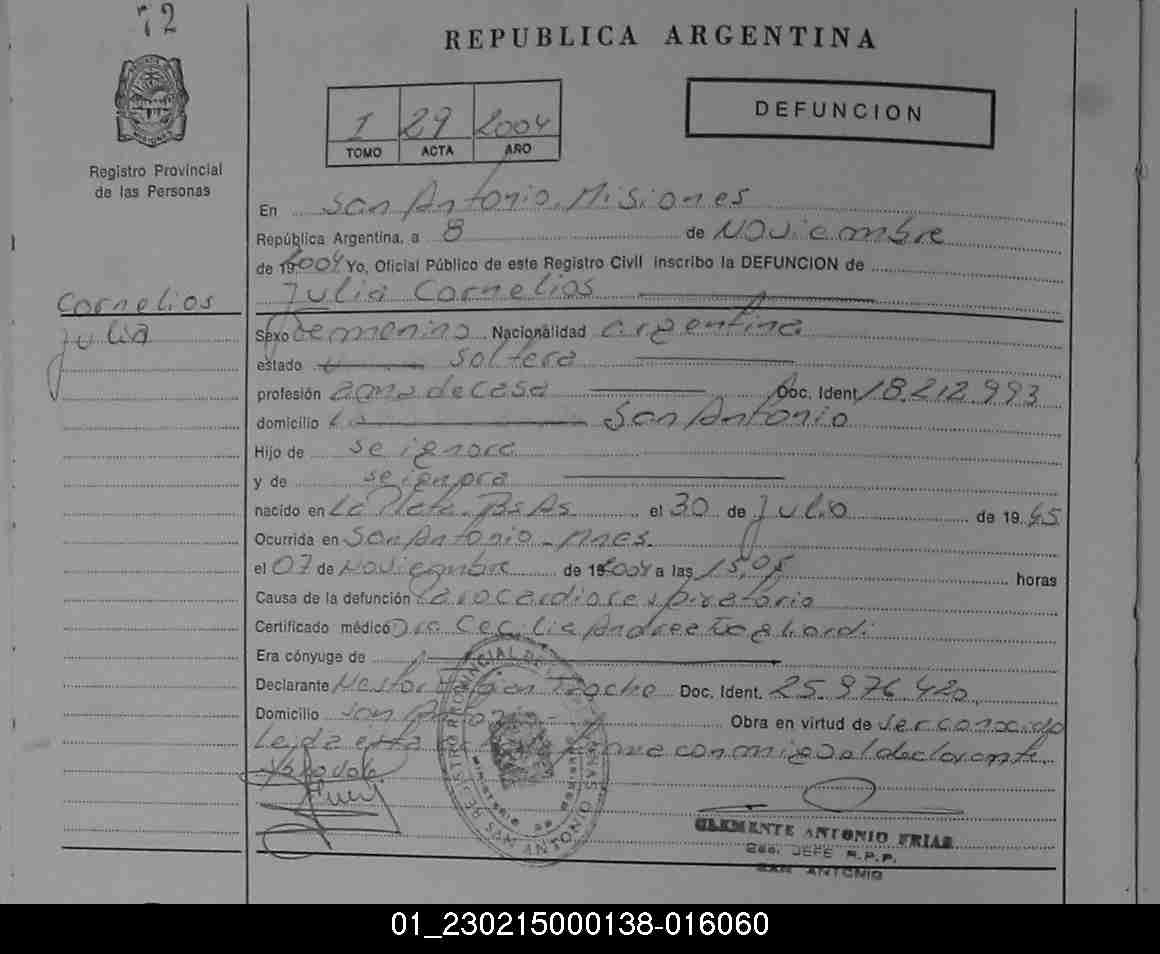 72
REPUBLICA ARGENTINA
DEFUNCION
I 29 2004
TOMO ACTA AÑO
Registro Provincial
de las Personas
En San Antonio. Misiones
República Argentina, a 8 de Noviembre
de 2004 Yo, Oficial Público de este Registro Civil inscribo la DEFUNCION de
Julia Cornelios
Cornelios
Julia
Sexo Femenino Nacionalidad argentina
estado soltera
profesión ama de casa Doc. Ident. 18.212.993
domicilio San Antonio
Hijo de se ignora
y de se ignora
nacido en La Plata. Bs As el 30 de Julio de 1945
Ocurrida en San Antonio - Mnes.
el 07 de Noviembre de 2004 a las 15,05 horas
Causa de la defunción Parocardiorespiratorio
Certificado médico Dra Cecilia Andrea
Era cónyuge de
Declarante Nestor Doc. Ident. 25.976.420
Domicilio San Antonio - Obra en virtud de ser conocido
Leida esta conmigo el declarante
CLEMENTE ANTONIO FRIAS
JEFE R.P.P.
SAN ANTONIO
01_230215000138-016060